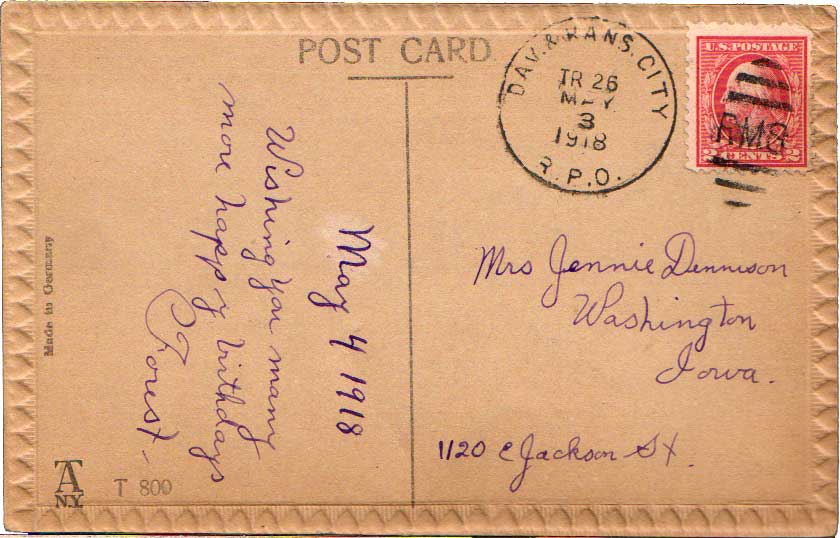 POST CARD
DAV. & KANS. CITY
TR 26
MAY
3
1918
R.P.O.
U.S. POSTAGE
RMS
2 CENTS 2
May 4 1918
Wishing you many
more happy birthdays
Forest.
Mrs Jennie Dennison
Washington
Iowa.
1120 E Jackson St.
Made in Germany
TA
N.Y.
T 800